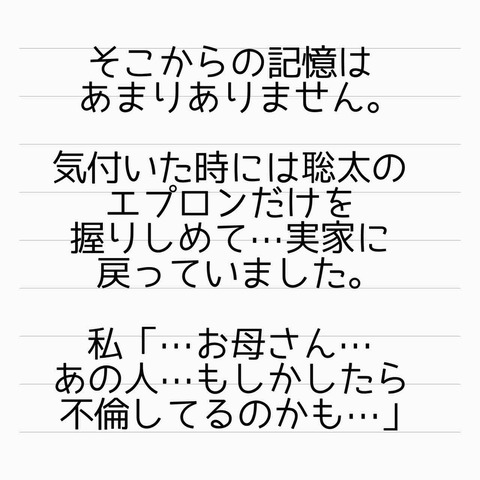 そこからの記憶は
あまりありません。
気付いた時には聡太の
エプロンだけを
握りしめて…実家に
戻っていました。
私「…お母さん…
あの人…もしかしたら
不倫してるのかも…」